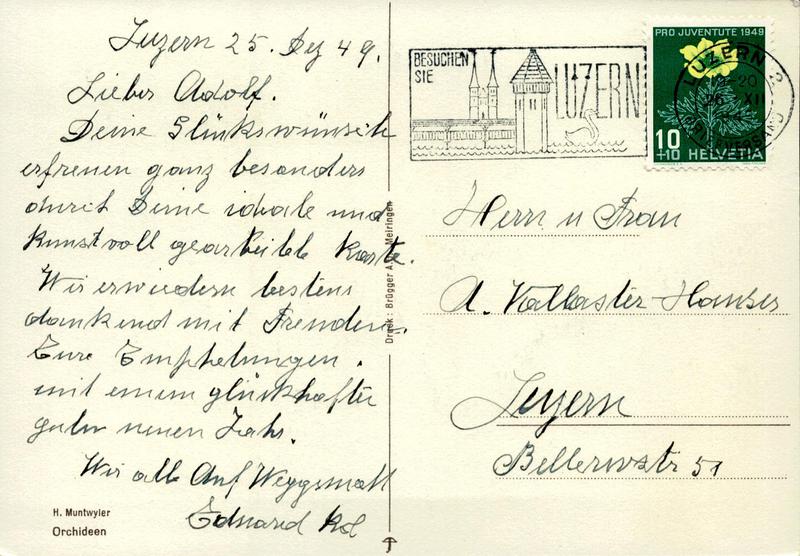 Luzern 25. Dez 49.
Lieber Adolf.
Deine Glükswünsch
erfreuen ganz besonders
durch Deine ideale und
kunstvoll gearbeitete Karte.
Wir erwiedern bestens
dankend mit Freuden
Eure Empfhelungen.
mit einem glückhafter
guten neuen Jahr.
Wir alle Auf Weggismatt
Eduard
H. Muntwyler
Orchideen
Druck: Brügger A.G. Meiringen
BESUCHEN
SIE
LUZERN
PRO JUVENTUTE 1949
LUZERN 2
-20
26. XII
10
+10 HELVETIA
Herrn u Frau
A. Vallaster-Hauser
Luzern
Bellerivstr 51